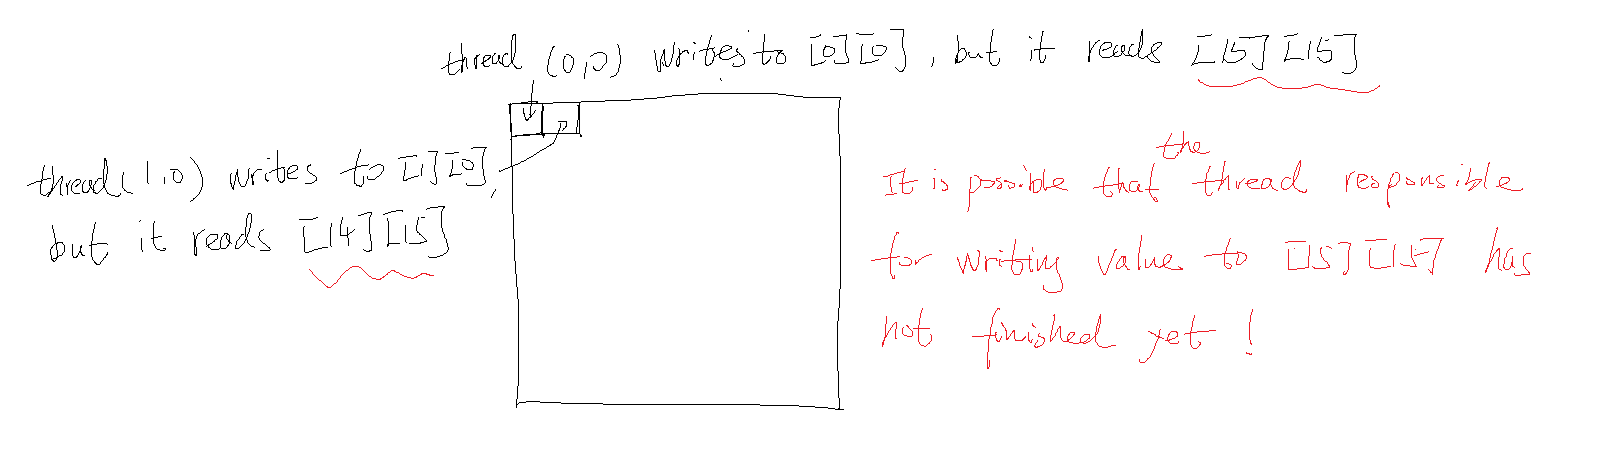 thread (0,0) writes to [0][0], but it reads [15][15]
thread(1,0) writes to [1][0],
but it reads [14][15]
the
It is possible that thread responsible
for writing value to [15][15] has
not finished yet!